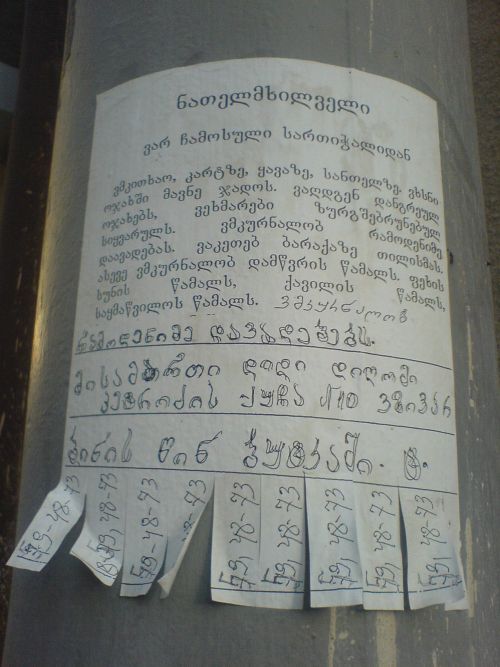 ნათელმხილველი
ვარ ჩამოსული სართიჭალიდან
ვმკითხაო, კარტზე, ყავაზე, სანთელზე. ვხსნი
ოჯახში მავნე ჯადოს. ვაღდგენ დანგრეულ
ოჯახებს, ვეხმარები ზურგშებრუნებულ
სიყვარულს. ვმკურნალობ რამოდენიმე
დაავადებას. ვაკეთებ ბარაქაზე თილისმას.
ასევე ვმკურნალობ დამწვრის წამალს. ფეხის
სუნის წამალს, ქავილის წამალს,
საყმაწვილოს წამალს. ვმკურნალობ
რამოდენიმე დავადებებს.
მისამართი დიდი დიღომი
პეტრიწის ქუჩა N10 ვზივარ
ბინის წინ ბუტკაში. ტ.
59-48-73
59-48-73
59-48-73
48-73
59-48-73
59-48-73
59-48-73
59-48-73
59-48-73